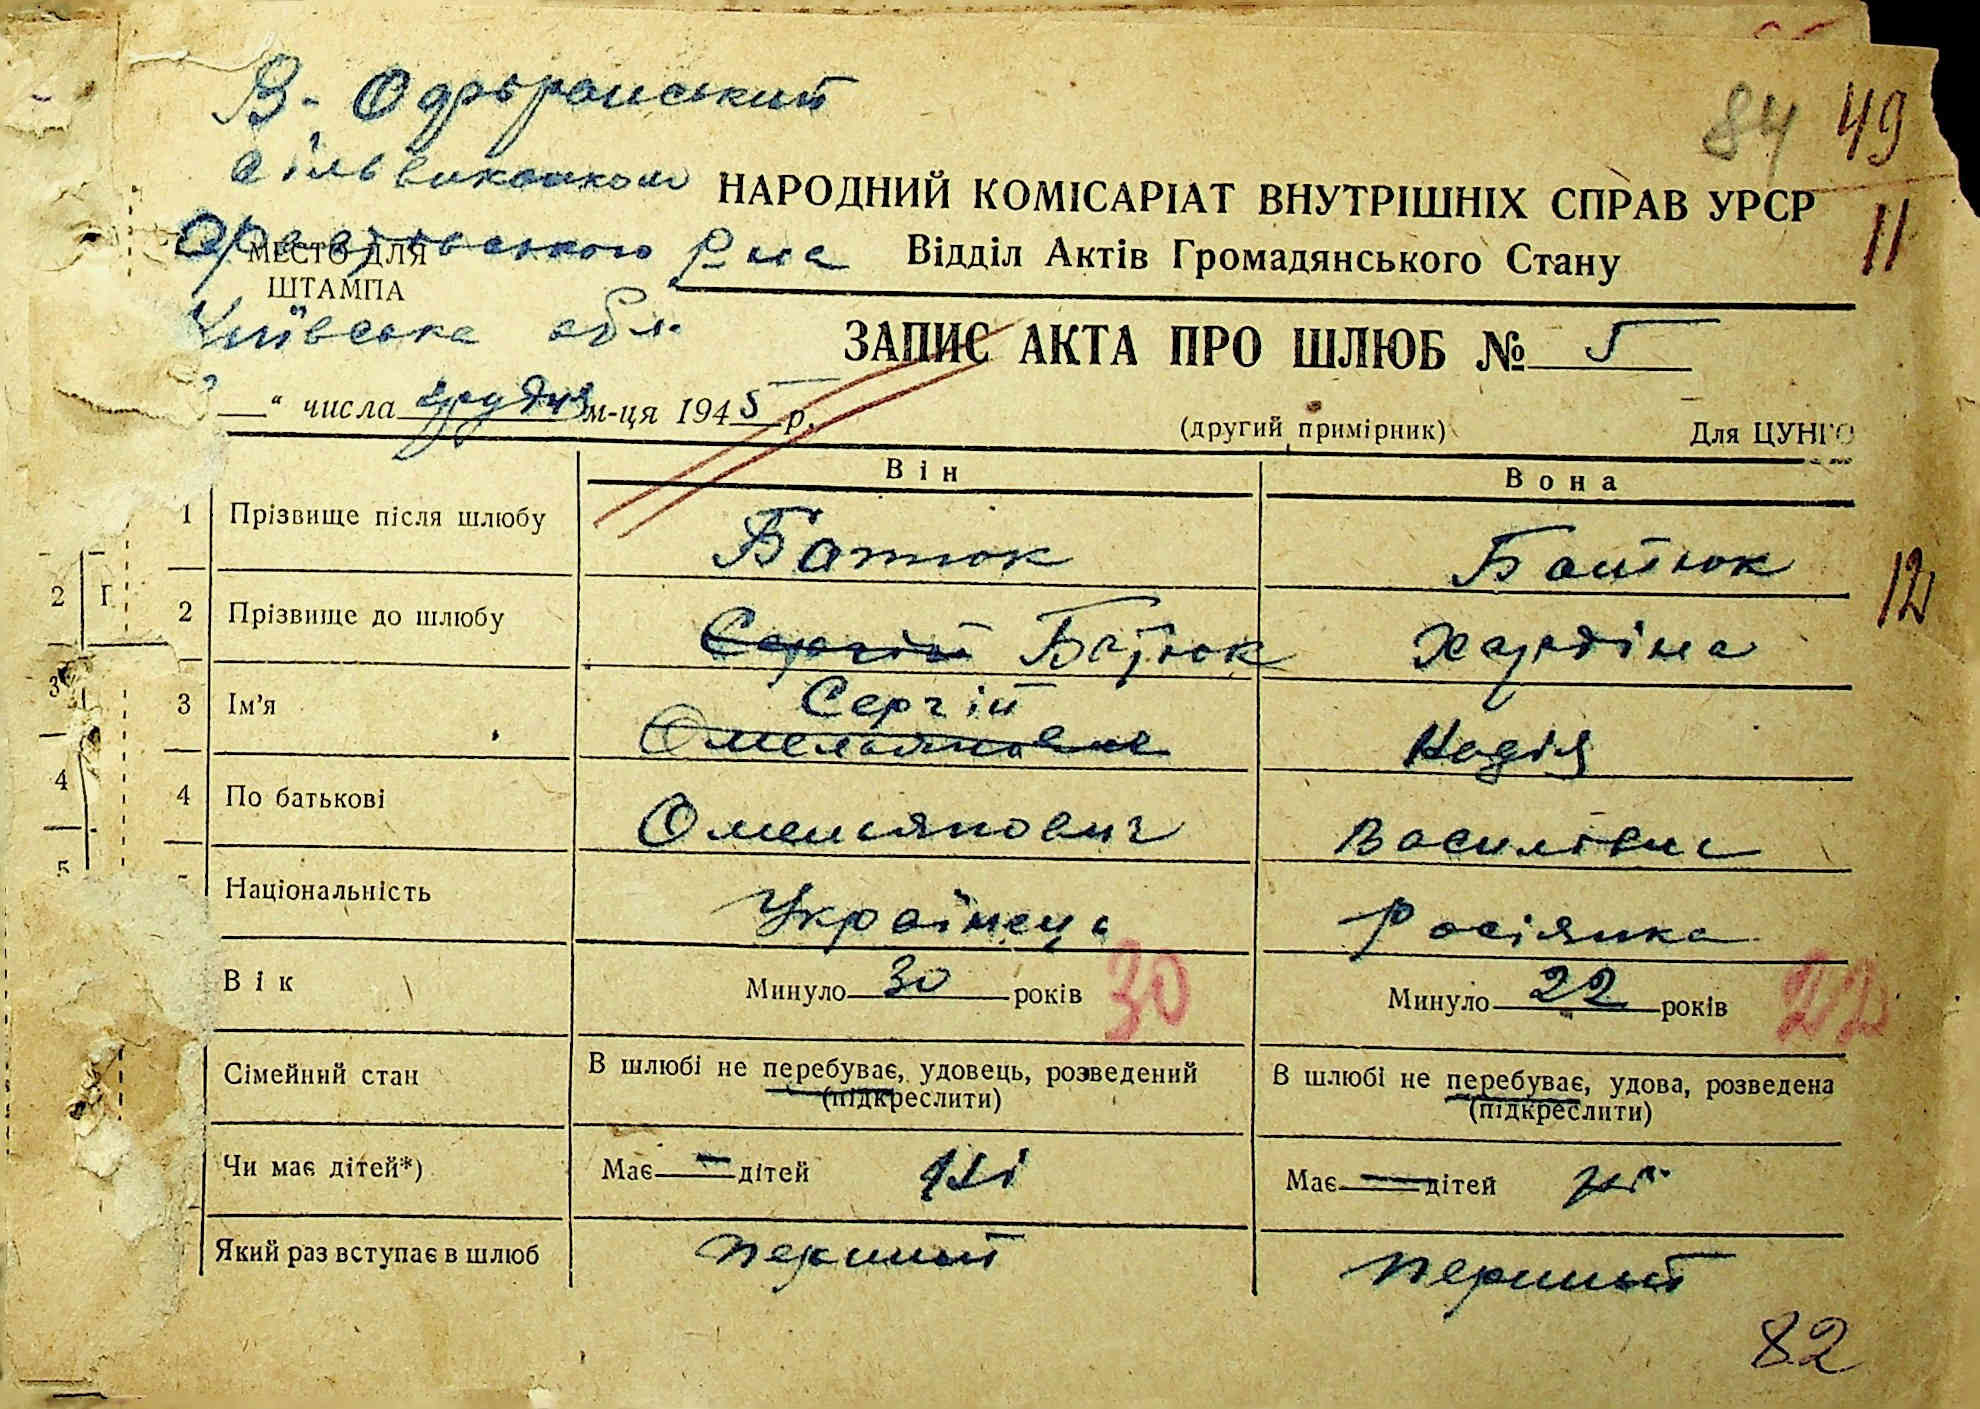 84 49
В-
сільвиконком
НАРОДНИЙ КОМІСАРІАТ ВНУТРІШНІХ СПРАВ УРСР
11
р-на
МЕСТО ДЛЯ
ШТАМПА
Відділ Актів Громадянського Стану
Київська обл.
ЗАПИС АКТА ПРО ШЛЮБ № 5
“ числа грудня м-ця 1945 р.
(другий примірник)
Для ЦУНГО
Він Вона
1 Прізвище після шлюбу Батюк Батюк
12
2 Г.
2 Прізвище до шлюбу Сергій Батюк
3
3 Ім'я Сергій Омелянович Надія
4
4 По батькові Омелянович Василівна
5
Національність Українець Росіянка
Вік Минуло 30 років 30 Минуло 22 років 22
Сімейний стан В шлюбі не перебуває, удовець, розведений (підкреслити) В шлюбі не перебуває, удова, розведена (підкреслити)
Чи має дітей*) Має — дітей ні Має — дітей ні
Який раз вступає в шлюб перший перший
82